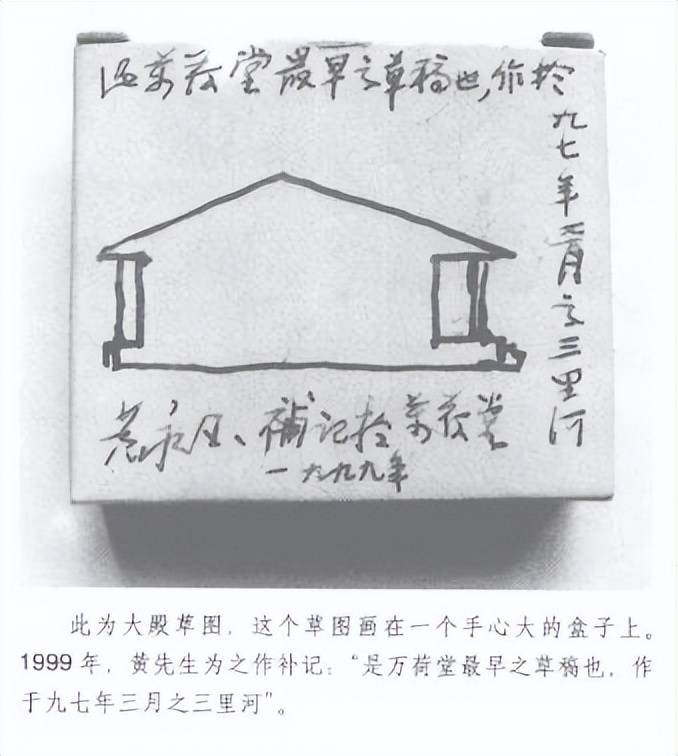 是萬荷堂最早之草稿也,作於
九七年三月之三里河
黄永玉、補記於萬荷堂
一九九九年
此为大殿草图，这个草图画在一个手心大的盒子上。
1999 年，黄先生为之作补记：“是万荷堂最早之草稿也，作
于九七年三月之三里河”。